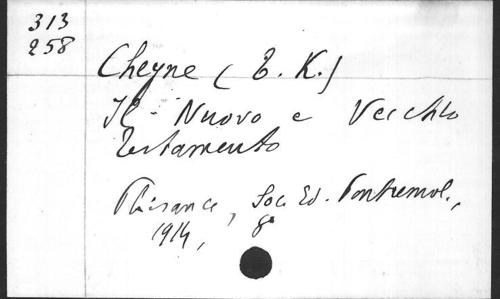 313
258
Cheyne (T. K.)
Il - Nuovo e Vecchio
Testamento
Plaisance, Soc. Ed. Pontremol.,
1914, 8°